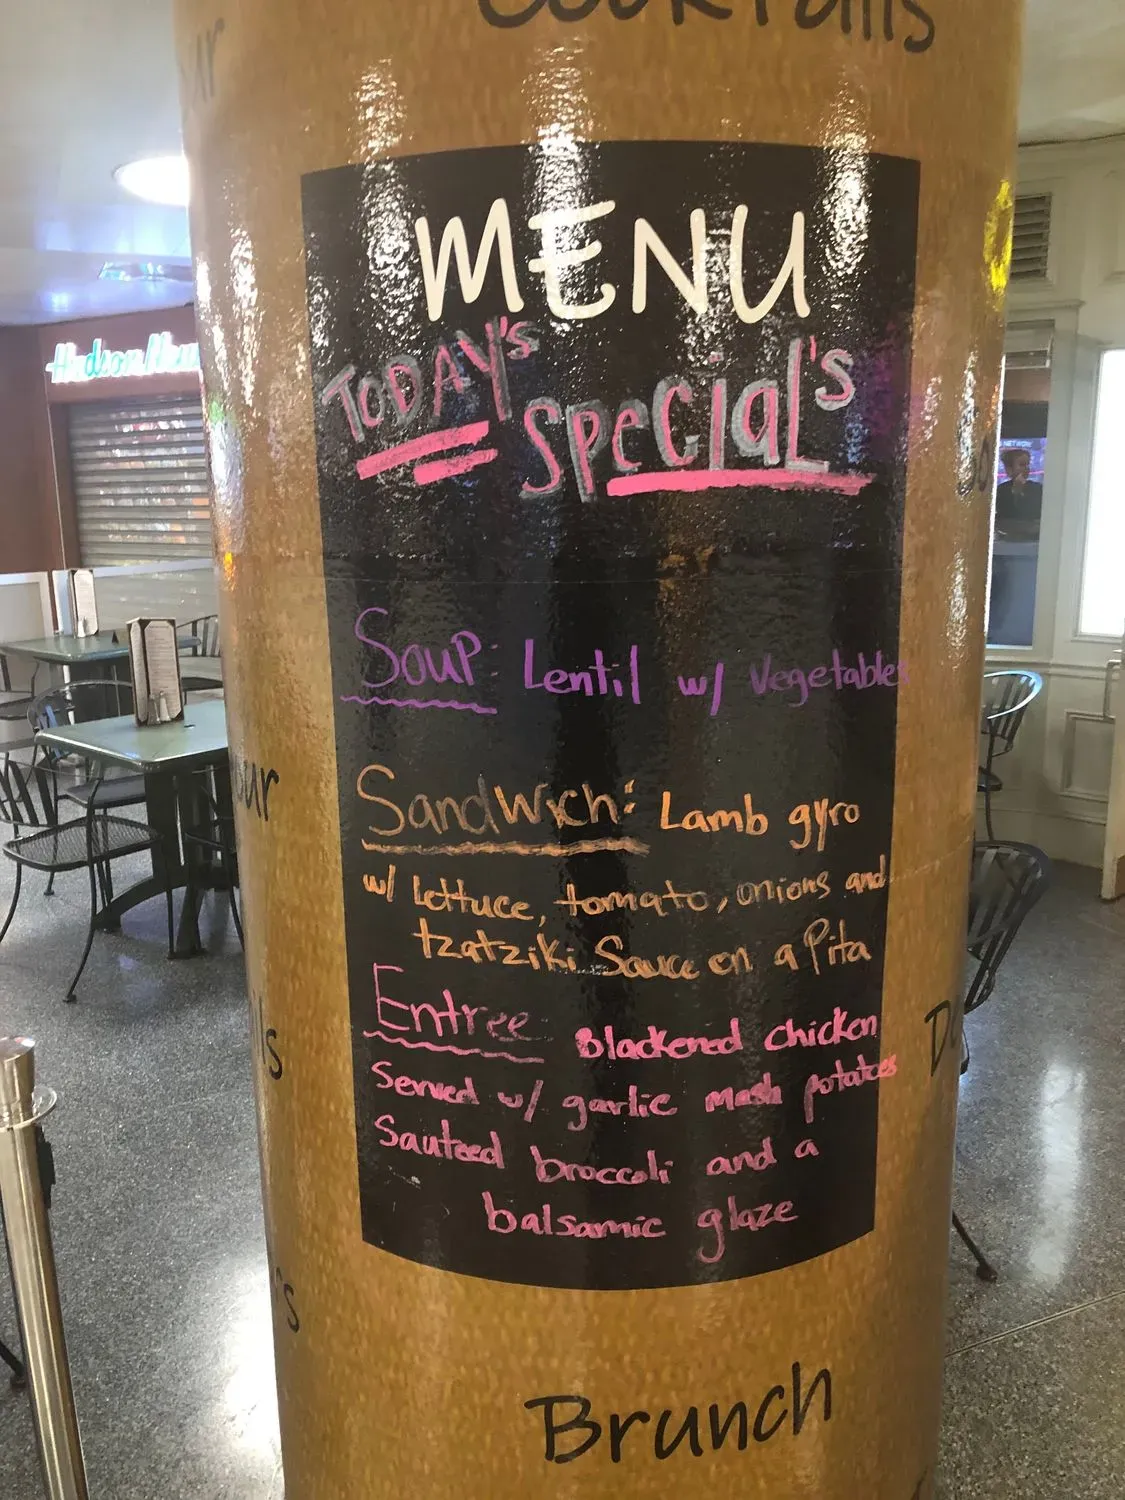 Cocktails
MENU
TODAY's
Special's
Soup: Lentil w/ Vegetables
Sandwich: Lamb gyro
w/ lettuce, tomato, onions and
tzatziki Sauce on a Pita
Entree Blackened chicken
Served w/ garlic mash potatoes
Sauteed broccoli and a
balsamic glaze
Brunch